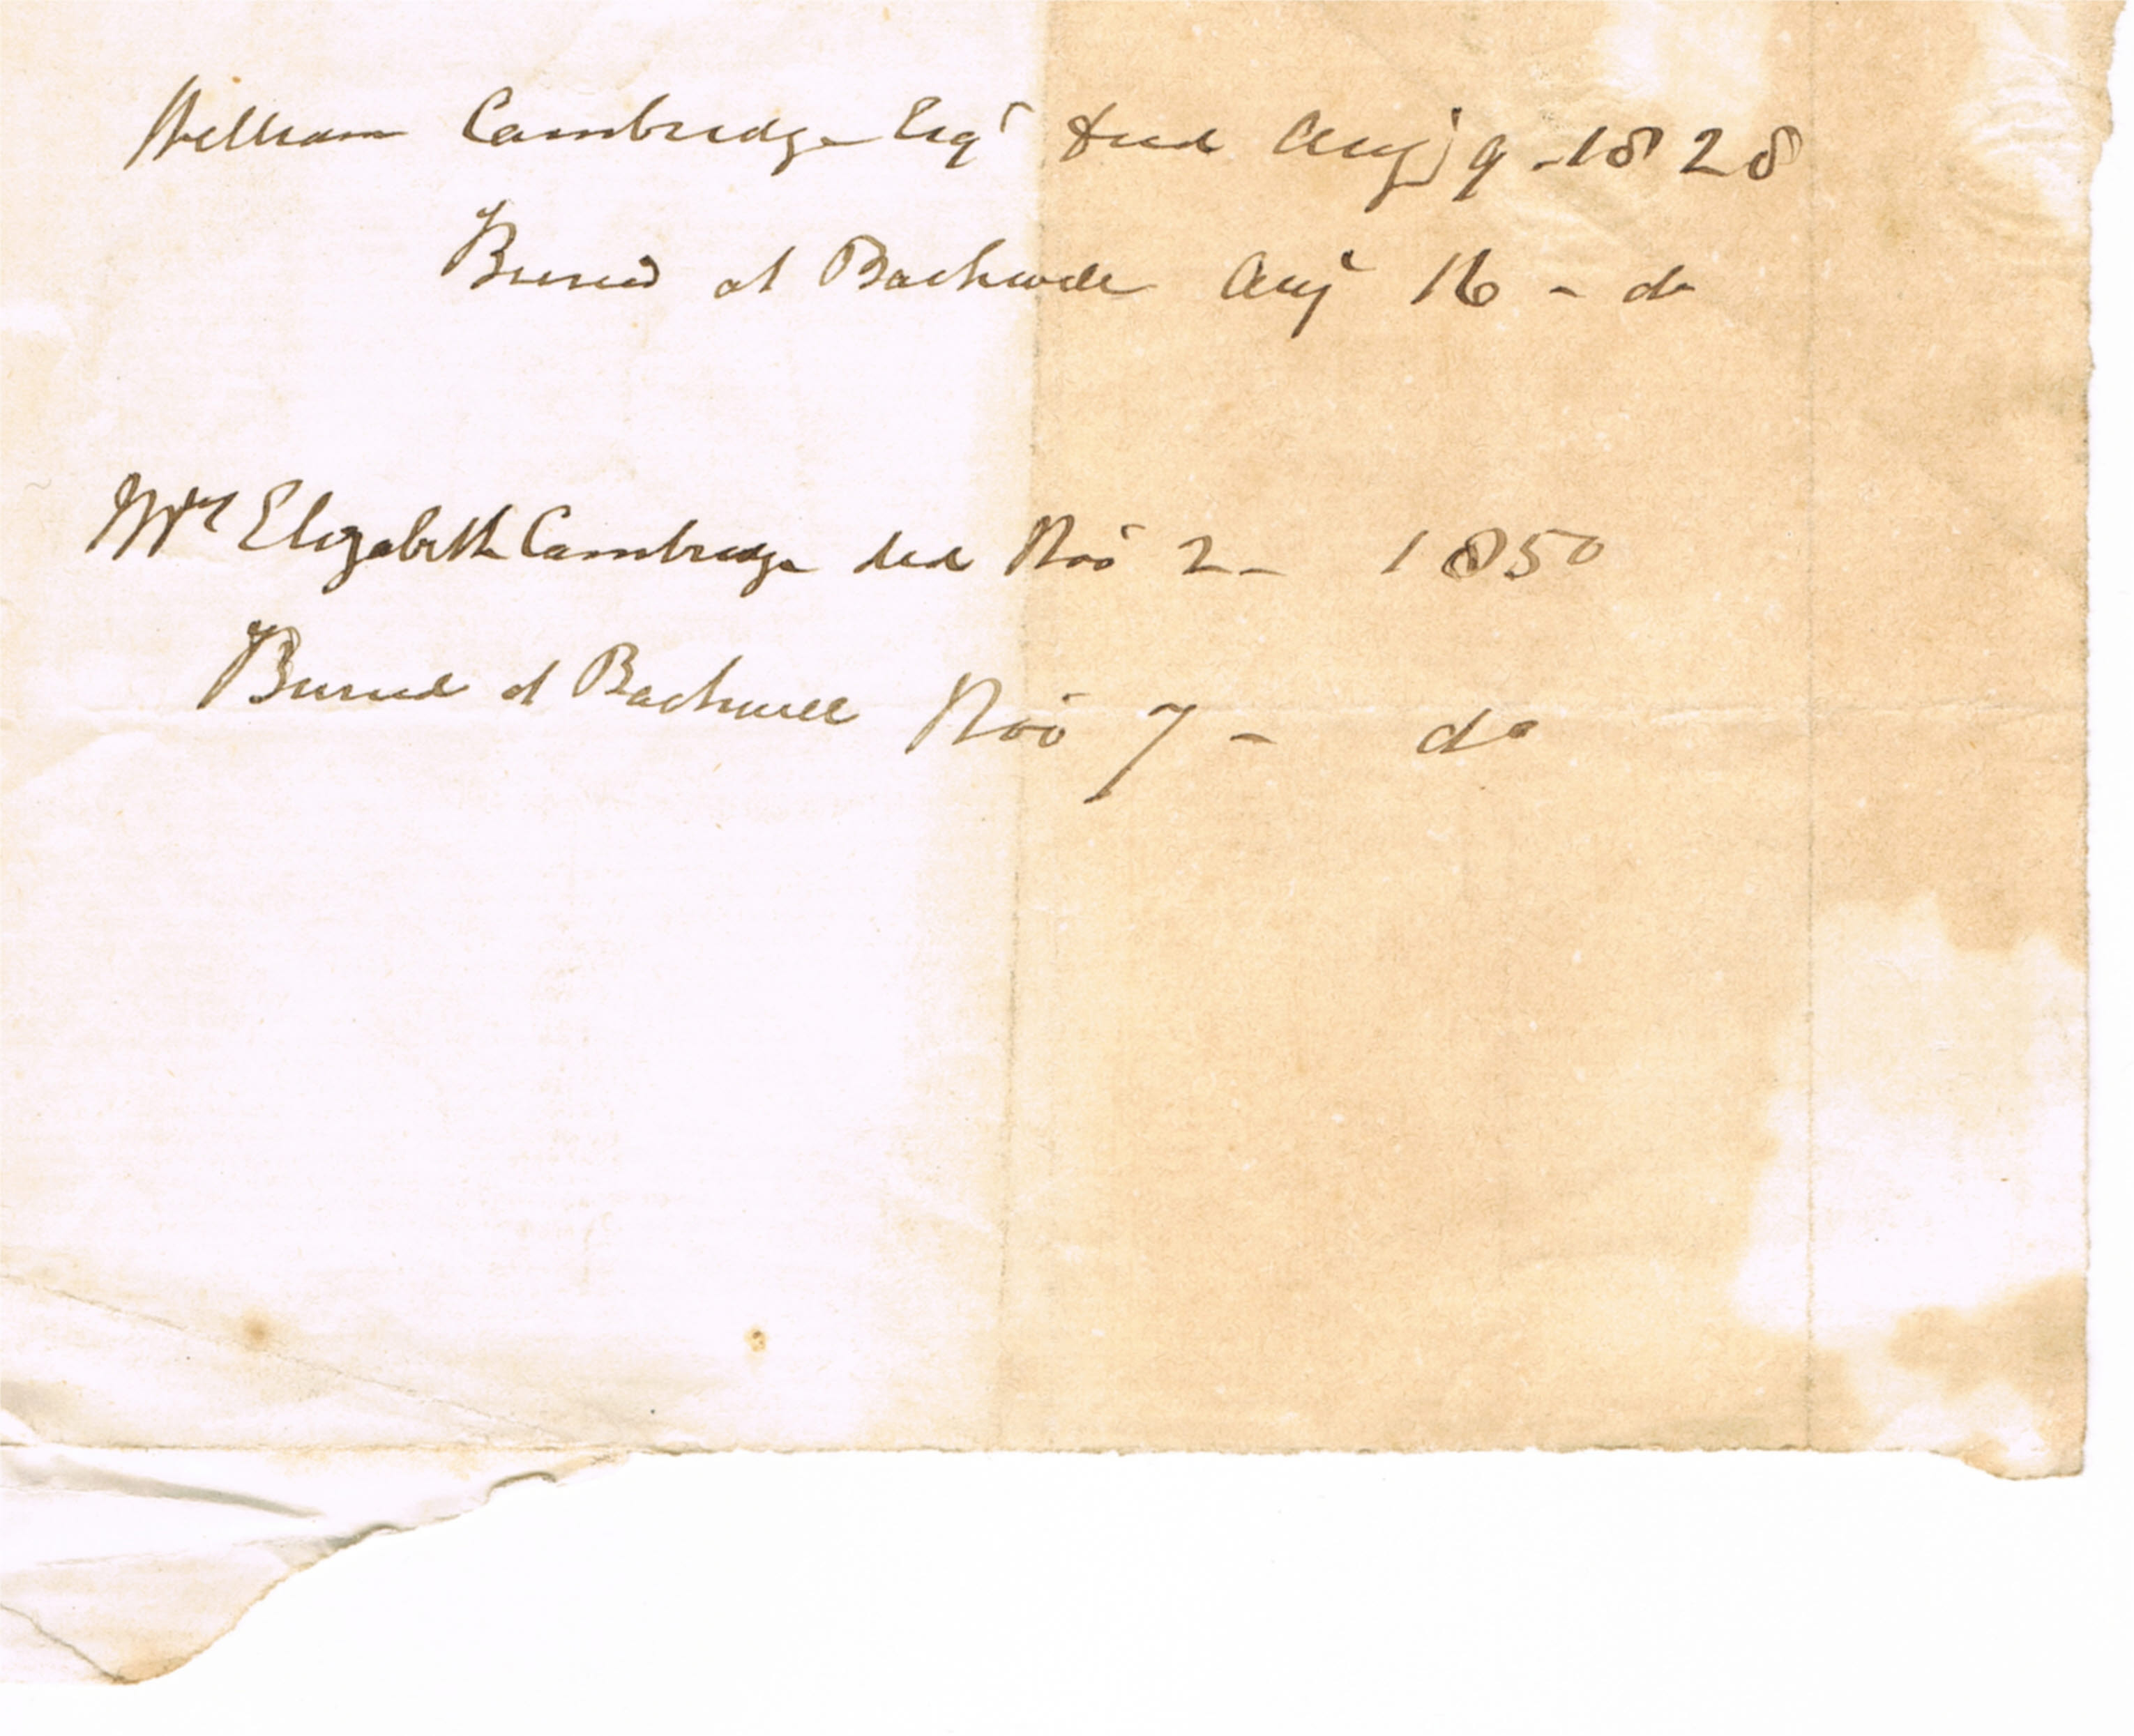 William Cambridge Esqr died Augt 9 - 1828
Buried at Backwell Augt 16 - do
Mrs Elizabeth Cambridge died Nov 2 - 1850
Buried at Backwell Nov 7 - do